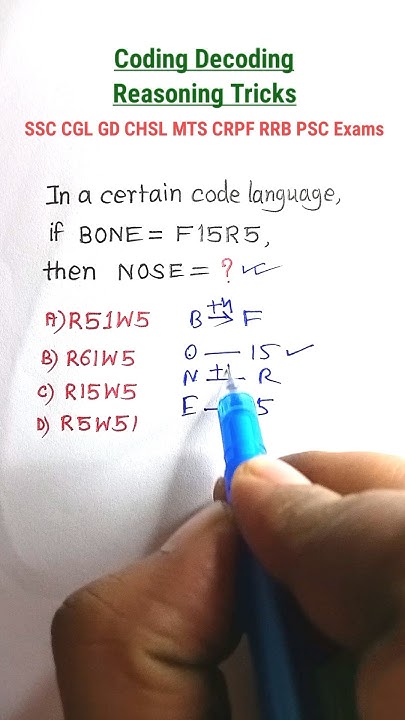 Coding Decoding
Reasoning Tricks
SSC CGL GD CHSL MTS CRPF RRB PSC Exams
In a certain code language,
if BONE = F15R5,
then NOSE = ? ✓
A) R51W5
B) R61W5
C) R15W5
D) R5W51
B +4→ F
O — 15 ✓
N — R
E — 5